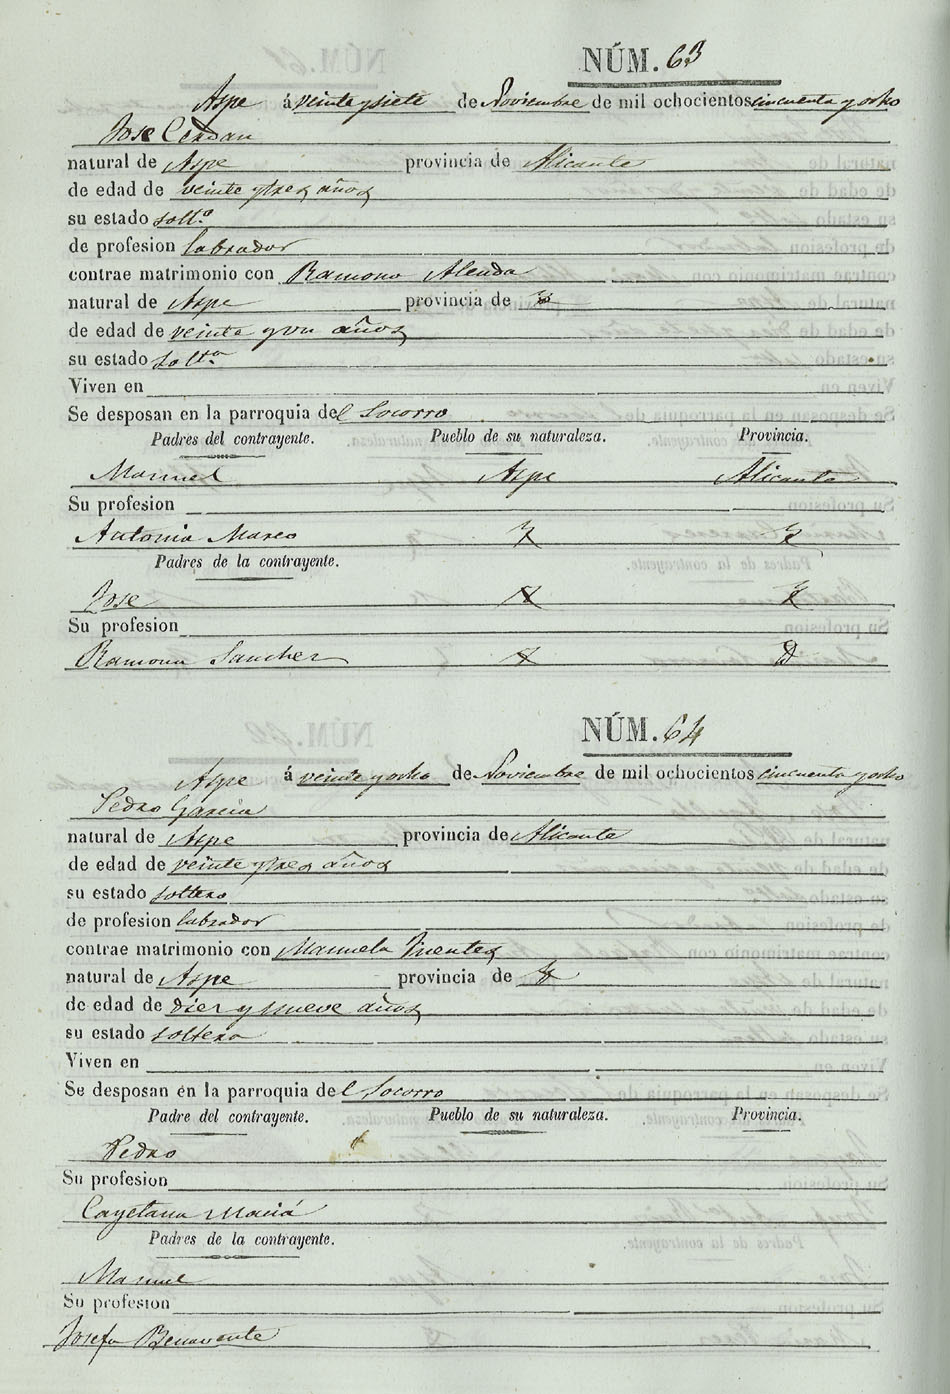 NÚM. 63
Aspe á veinte y siete de Noviembre de mil ochocientos cincuenta y ocho
Jose Cerdan
natural de Aspe provincia de Alicante
de edad de veinte y tres años
su estado solt.º
de profesion labrador
contrae matrimonio con Ramona Alenda
natural de Aspe provincia de
de edad de veinte y un años
su estado solt.ª
Viven en
Se desposan en la parroquia del Socorro
Padres del contrayente. Pueblo de su naturaleza. Provincia.
Manuel Aspe Alicante
Su profesion
Antonia Mareo
Padres de la contrayente.
Jose
Su profesion
Ramona Sanchez
NÚM. 64
Aspe á veinte y ocho de Noviembre de mil ochocientos cincuenta y ocho
Pedro Garcia
natural de Aspe provincia de Alicante
de edad de veinte y tres años
su estado soltero
de profesion labrador
contrae matrimonio con Manuela Fuentes
natural de Aspe provincia de
de edad de diez y nueve años
su estado soltera
Viven en
Se desposan en la parroquia del Socorro
Padre del contrayente. Pueblo de su naturaleza. Provincia.
Pedro
Su profesion
Cayetana Maciá
Padres de la contrayente.
Manuel
Su profesion
Josefa Benavente